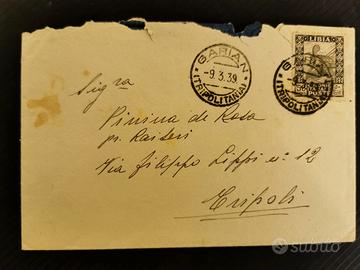 LIBIA
POSTE
GARIAN
-9.3.39
(TRIPOLITANIA)
GARIAN
(TRIPOLITANIA)
Sig.ra
Pinina de Rosa
pr. Kaiseri
Via Filippo Lippi n° 12
Tripoli
subito